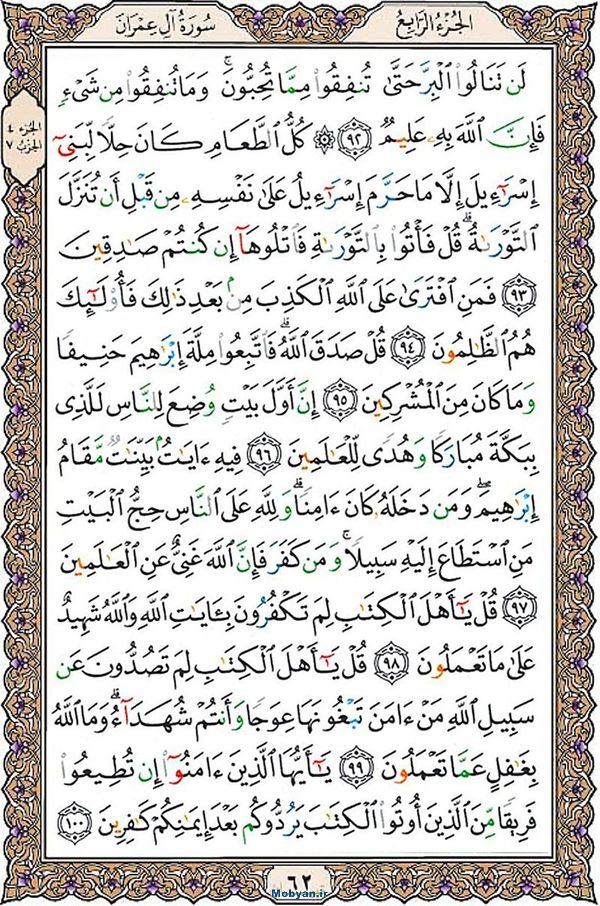 الجُزءُ الرَّابِعُ
سُورَةُ آلِ عِمْرَانَ
الجزء ٤
الحزب ٧
لَن تَنَالُوا۟ ٱلْبِرَّ حَتَّىٰ تُنفِقُوا۟ مِمَّا تُحِبُّونَ ۚ وَمَا تُنفِقُوا۟ مِن شَىْءٍ
فَإِنَّ ٱللَّهَ بِهِۦ عَلِيمٌ ٩٢ ۞ كُلُّ ٱلطَّعَامِ كَانَ حِلًّا لِّبَنِىٓ
إِسْرَٰٓءِيلَ إِلَّا مَا حَرَّمَ إِسْرَٰٓءِيلُ عَلَىٰ نَفْسِهِۦ مِن قَبْلِ أَن تُنَزَّلَ
ٱلتَّوْرَىٰةُ ۗ قُلْ فَأْتُوا۟ بِٱلتَّوْرَىٰةِ فَٱتْلُوهَآ إِن كُنتُمْ صَٰدِقِينَ
٩٣ فَمَنِ ٱفْتَرَىٰ عَلَى ٱللَّهِ ٱلْكَذِبَ مِنۢ بَعْدِ ذَٰلِكَ فَأُو۟لَٰٓئِكَ
هُمُ ٱلظَّٰلِمُونَ ٩٤ قُلْ صَدَقَ ٱللَّهُ ۗ فَٱتَّبِعُوا۟ مِلَّةَ إِبْرَٰهِيمَ حَنِيفًا
وَمَا كَانَ مِنَ ٱلْمُشْرِكِينَ ٩٥ إِنَّ أَوَّلَ بَيْتٍ وُضِعَ لِلنَّاسِ لَلَّذِى
بِبَكَّةَ مُبَارَكًا وَهُدًى لِّلْعَٰلَمِينَ ٩٦ فِيهِ ءَايَٰتٌۢ بَيِّنَٰتٌ مَّقَامُ
إِبْرَٰهِيمَ ۖ وَمَن دَخَلَهُۥ كَانَ ءَامِنًا ۗ وَلِلَّهِ عَلَى ٱلنَّاسِ حِجُّ ٱلْبَيْتِ
مَنِ ٱسْتَطَاعَ إِلَيْهِ سَبِيلًا ۚ وَمَن كَفَرَ فَإِنَّ ٱللَّهَ غَنِىٌّ عَنِ ٱلْعَٰلَمِينَ
٩٧ قُلْ يَٰٓأَهْلَ ٱلْكِتَٰبِ لِمَ تَكْفُرُونَ بِـَٔايَٰتِ ٱللَّهِ وَٱللَّهُ شَهِيدٌ
عَلَىٰ مَا تَعْمَلُونَ ٩٨ قُلْ يَٰٓأَهْلَ ٱلْكِتَٰبِ لِمَ تَصُدُّونَ عَن
سَبِيلِ ٱللَّهِ مَنْ ءَامَنَ تَبْغُونَهَا عِوَجًا وَأَنتُمْ شُهَدَآءُ ۗ وَمَا ٱللَّهُ
بِغَٰفِلٍ عَمَّا تَعْمَلُونَ ٩٩ يَٰٓأَيُّهَا ٱلَّذِينَ ءَامَنُوٓا۟ إِن تُطِيعُوا۟
فَرِيقًا مِّنَ ٱلَّذِينَ أُوتُوا۟ ٱلْكِتَٰبَ يَرُدُّوكُم بَعْدَ إِيمَٰنِكُمْ كَٰفِرِينَ ١٠٠
٦٢
Mobyan.ir